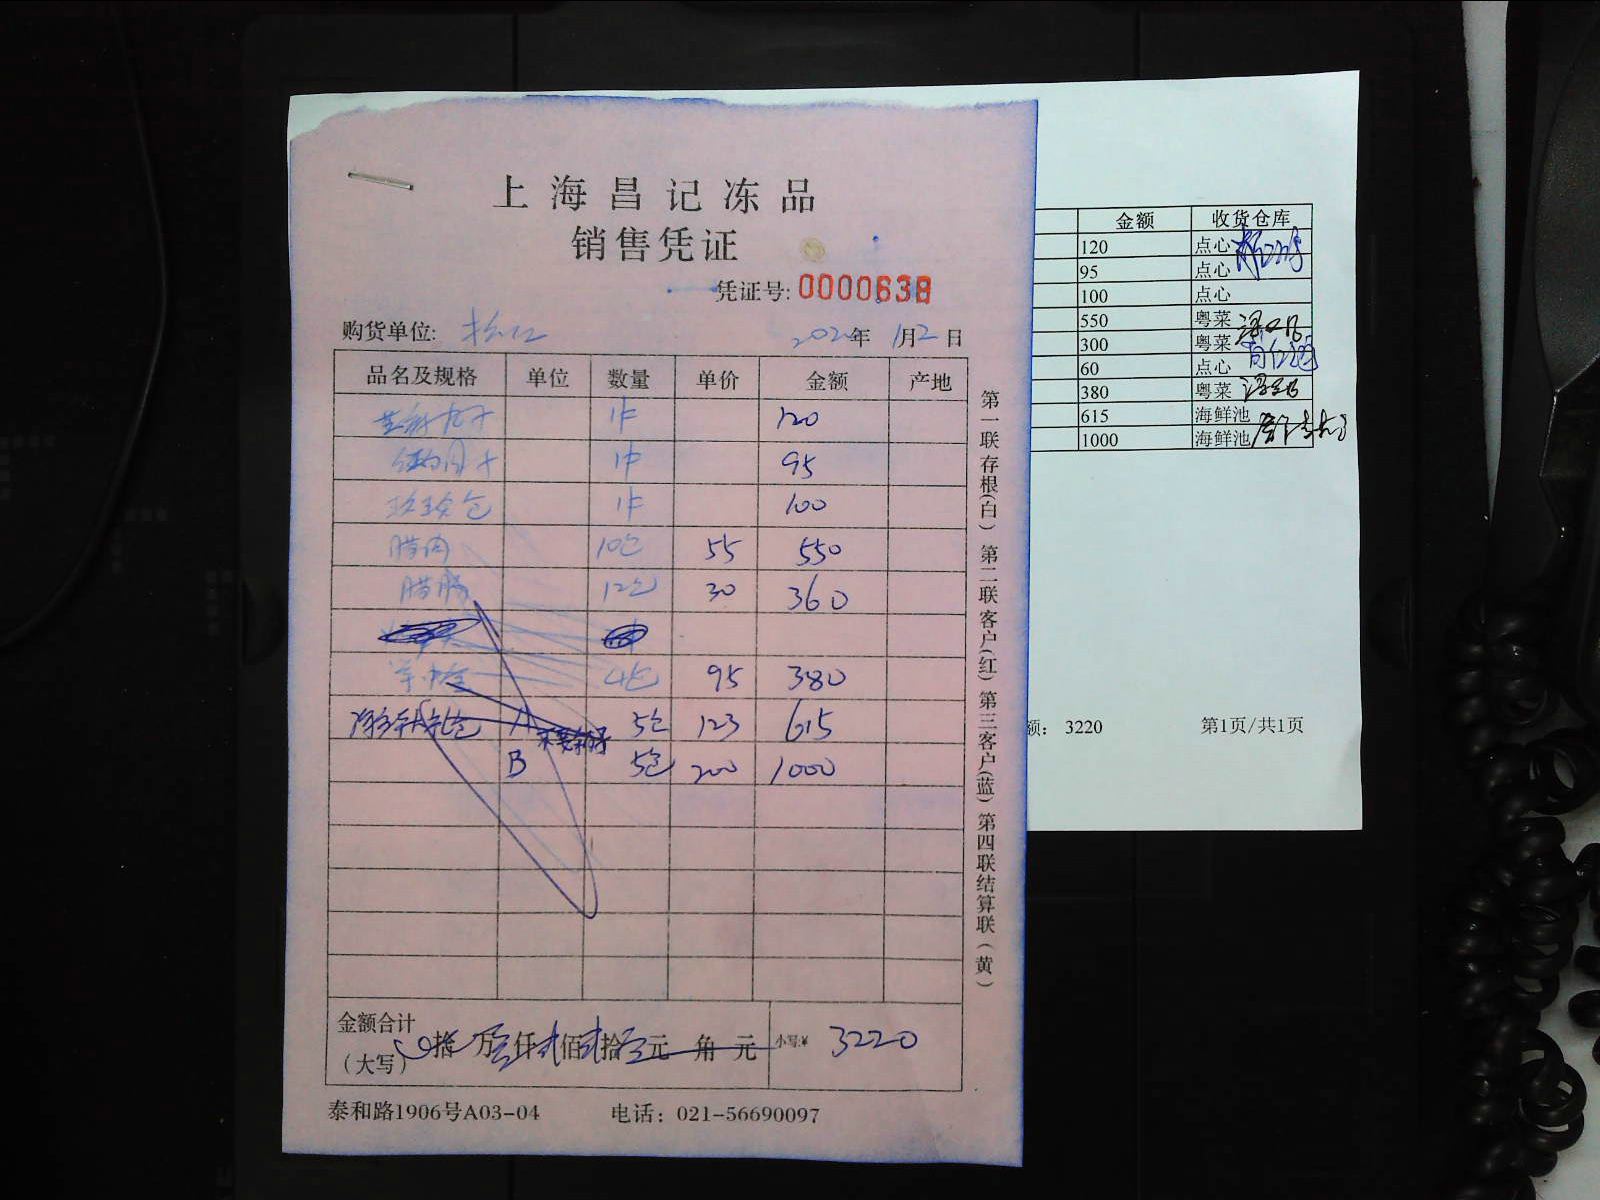 上海昌记冻品
销售凭证
凭证号: 0000638
购货单位: 202 年 1月2日
品名及规格 单位 数量 单价 金额 产地
1件 120
1件 95
1件 100
腊肉 10包 55 550
腊肠 12包 30 360
4包 95 380
A 5包 123 615
B 5包 200 1000
金额合计
(大写) 拾 万叁仟贰佰贰拾零元 角 元 小写:¥ 3220
泰和路1906号A03-04 电话: 021-56690097
第一联存根(白) 第二联客户(红) 第三客户(蓝) 第四联结算联(黄)
金额 收货仓库
120 点心
95 点心
100 点心
550 粤菜
300 粤菜
60 点心
380 粤菜
615 海鲜池
1000 海鲜池
额: 3220 第1页/共1页